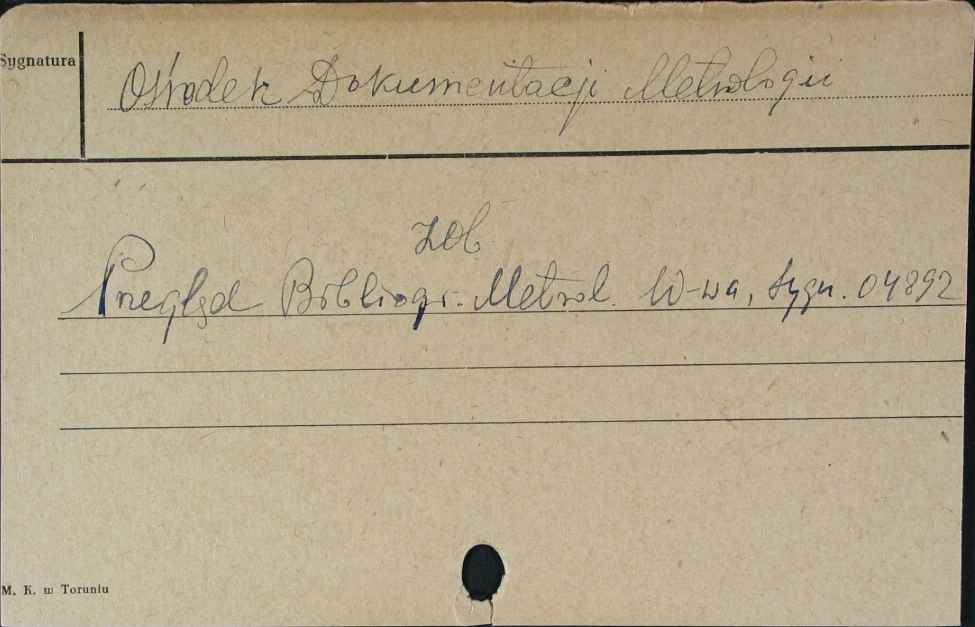 Sygnatura
Ośrodek Dokumentacji Metrologii
zob
Przegląd Bibliogr. Metrol. W-wa, Sygn. 04892
M. K. w Toruniu